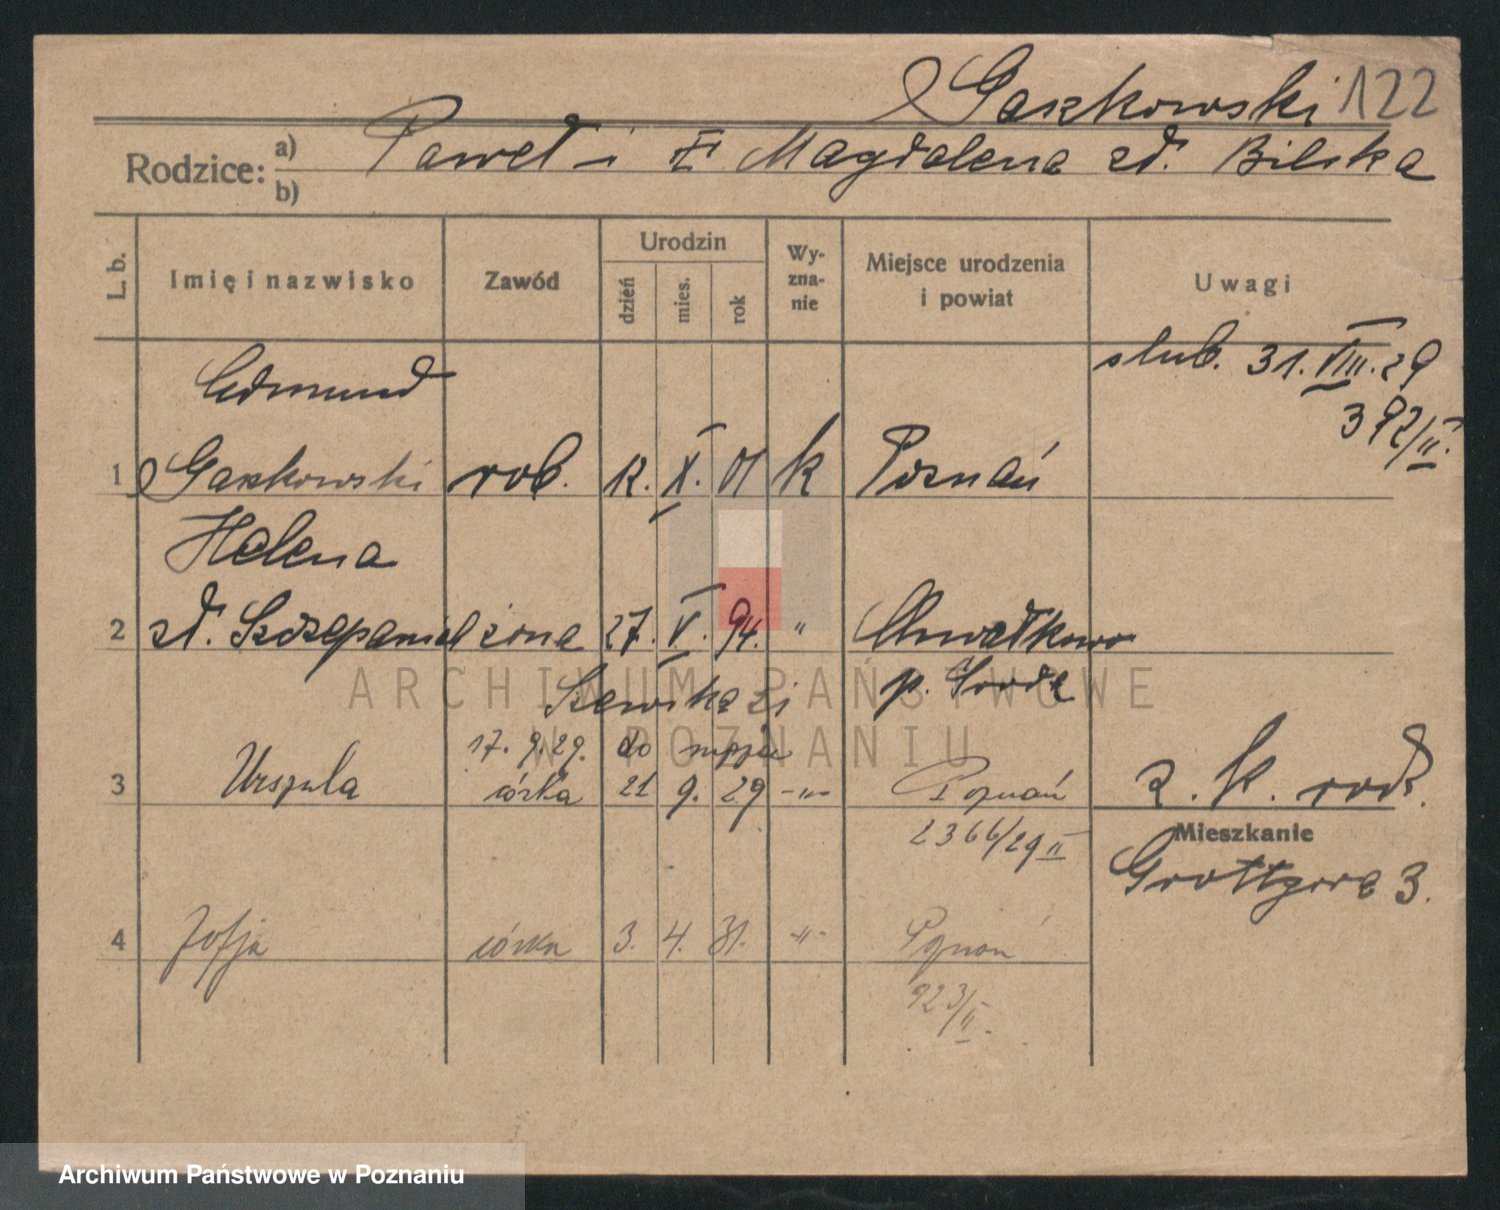 Gaszkowski 122
Rodzice: a) b) Paweł i Magdalena zd. Bilska
L. b. Imię i nazwisko Zawód Urodzin dzień mies. rok Wyznanie Miejsce urodzenia i powiat Uwagi
Edmund ślub. 31. VIII. 29
392/II.
1 Gaszkowski rob. 12. X. 01 k Poznań
Helena
2 zd. Szczepaniak żona 27. V. 94. " Chwałkowo
p. Środa
ARCHIWUM PAŃSTWOWE
W POZNANIU
17. 9. 29. do
3 Urszula córka 21 9. 29 -"- Poznań z. k. rodz.
2366/29 II
Mieszkanie
Grottgera 3.
4 Zofja córka 3. 4. 31. -"- Poznań
923/II.
Archiwum Państwowe w Poznaniu